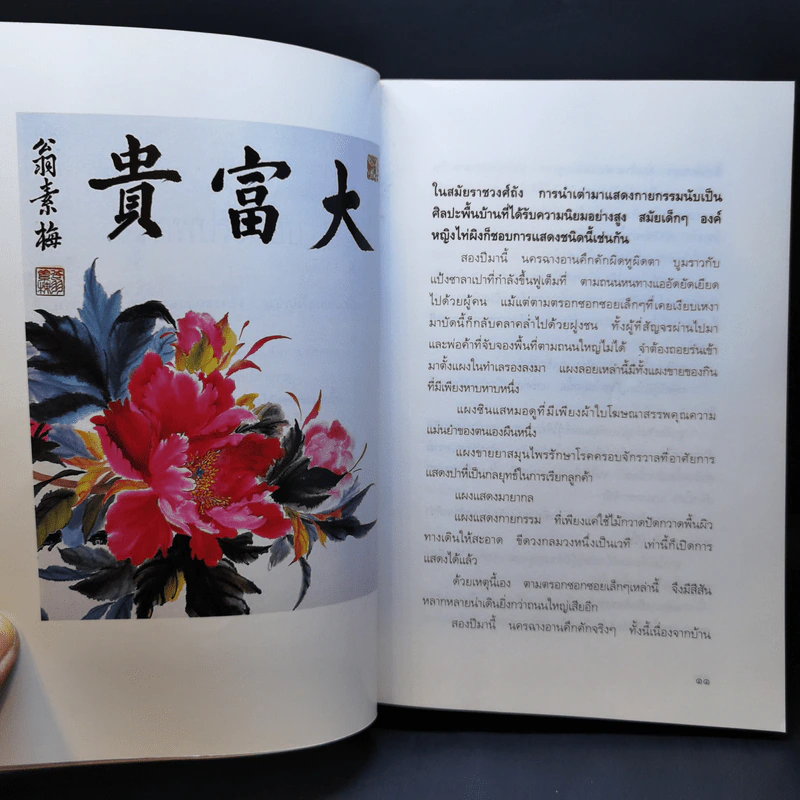 大富貴
翁素梅
ในสมัยราชวงศ์ถัง การนำเต่ามาแสดงกายกรรมนับเป็น
ศิลปะพื้นบ้านที่ได้รับความนิยมอย่างสูง สมัยเด็กๆ องค์
หญิงไท่ผิงก็ชอบการแสดงชนิดนี้เช่นกัน
สองปีมานี้ นครฉางอานคึกคักผิดหูผิดตา บูมราวกับ
แป้งซาลาเปาที่กำลังขึ้นฟูเต็มที่ ตามถนนหนทางแออัดยัดเยียด
ไปด้วยผู้คน แม้แต่ตามตรอกซอกซอยเล็กๆที่เคยเงียบเหงา
มาบัดนี้ก็กลับคลาคล่ำไปด้วยฝูงชน ทั้งผู้ที่สัญจรผ่านไปมา
และพ่อค้าที่จับจองพื้นที่ตามถนนใหญ่ไม่ได้ จำต้องถอยร่นเข้า
มาตั้งแผงในทำเลรองลงมา แผงลอยเหล่านี้มีทั้งแผงขายของกิน
ที่มีเพียงหาบหาบหนึ่ง
แผงซินแสหมอดูที่มีเพียงผ้าใบโฆษณาสรรพคุณความ
แม่นยำของตนเองผืนหนึ่ง
แผงขายยาสมุนไพรรักษาโรคครอบจักรวาลที่อาศัยการ
แสดงปาหี่เป็นกลยุทธ์ในการเรียกลูกค้า
แผงแสดงมายากล
แผงแสดงกายกรรม ที่เพียงแค่ใช้ไม้กวาดปัดกวาดพื้นผิว
ทางเดินให้สะอาด ขีดวงกลมวงหนึ่งเป็นเวที เท่านี้ก็เปิดการ
แสดงได้แล้ว
ด้วยเหตุนี้เอง ตามตรอกซอกซอยเล็กๆเหล่านี้ จึงมีสีสัน
หลากหลายน่าเดินยิ่งกว่าถนนใหญ่เสียอีก
สองปีมานี้ นครฉางอานคึกคักจริงๆ ทั้งนี้เนื่องจากบ้าน
๑๑